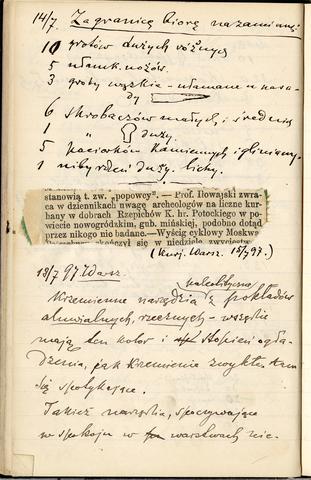 14/7. Zagranicę biorę na zamianę:
10 grotów dużych różnych
5 ułamk. nożów.
3 groty wąskie – ułamane u nasady
6 skrobaczów małych i średnich
1 " duży.
5 paciorków kamiennych i glinian.
1 niby rdzeń duży. lichy.
stanowią t. zw. „popowcy". — Prof. Iłowajski zwra-
ca w dziennikach uwagę archeologów na liczne kur-
hany w dobrach Rzepichów K. hr. Potockiego w po-
wiecie nowogródzkim, gub. mińskiej, podobno dotąd
przez nikogo nie badane.—Wyścig cyklowy Moskwa
skończył się w niedzielę
(Kurj. Warsz. 15/7 97.)
18/7 97. Warsz.
paleolityczne
Krzemienne narzędzia z pokładów
aluwialnych, rzecznych – wszędzie
mają ten kolor i stopień ogła-
dzenia, jak krzemienie zwykłe tam
się spotykające.
Takież narzędzia, spoczywające
w spokoju w warstwach nie-